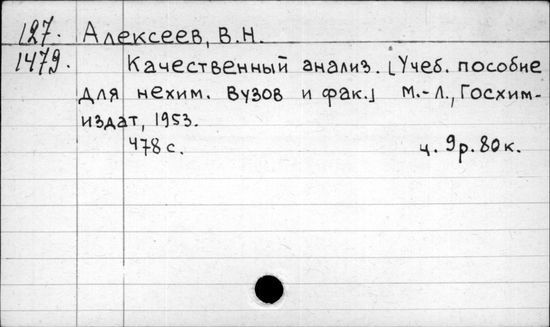 127. Алексеев, В.Н.
1479. Качественный анализ. [Учеб. пособие
для нехим. вузов и фак.] М.-Л., Госхим-
издат, 1953.
478 с. ц. 9р. 80к.